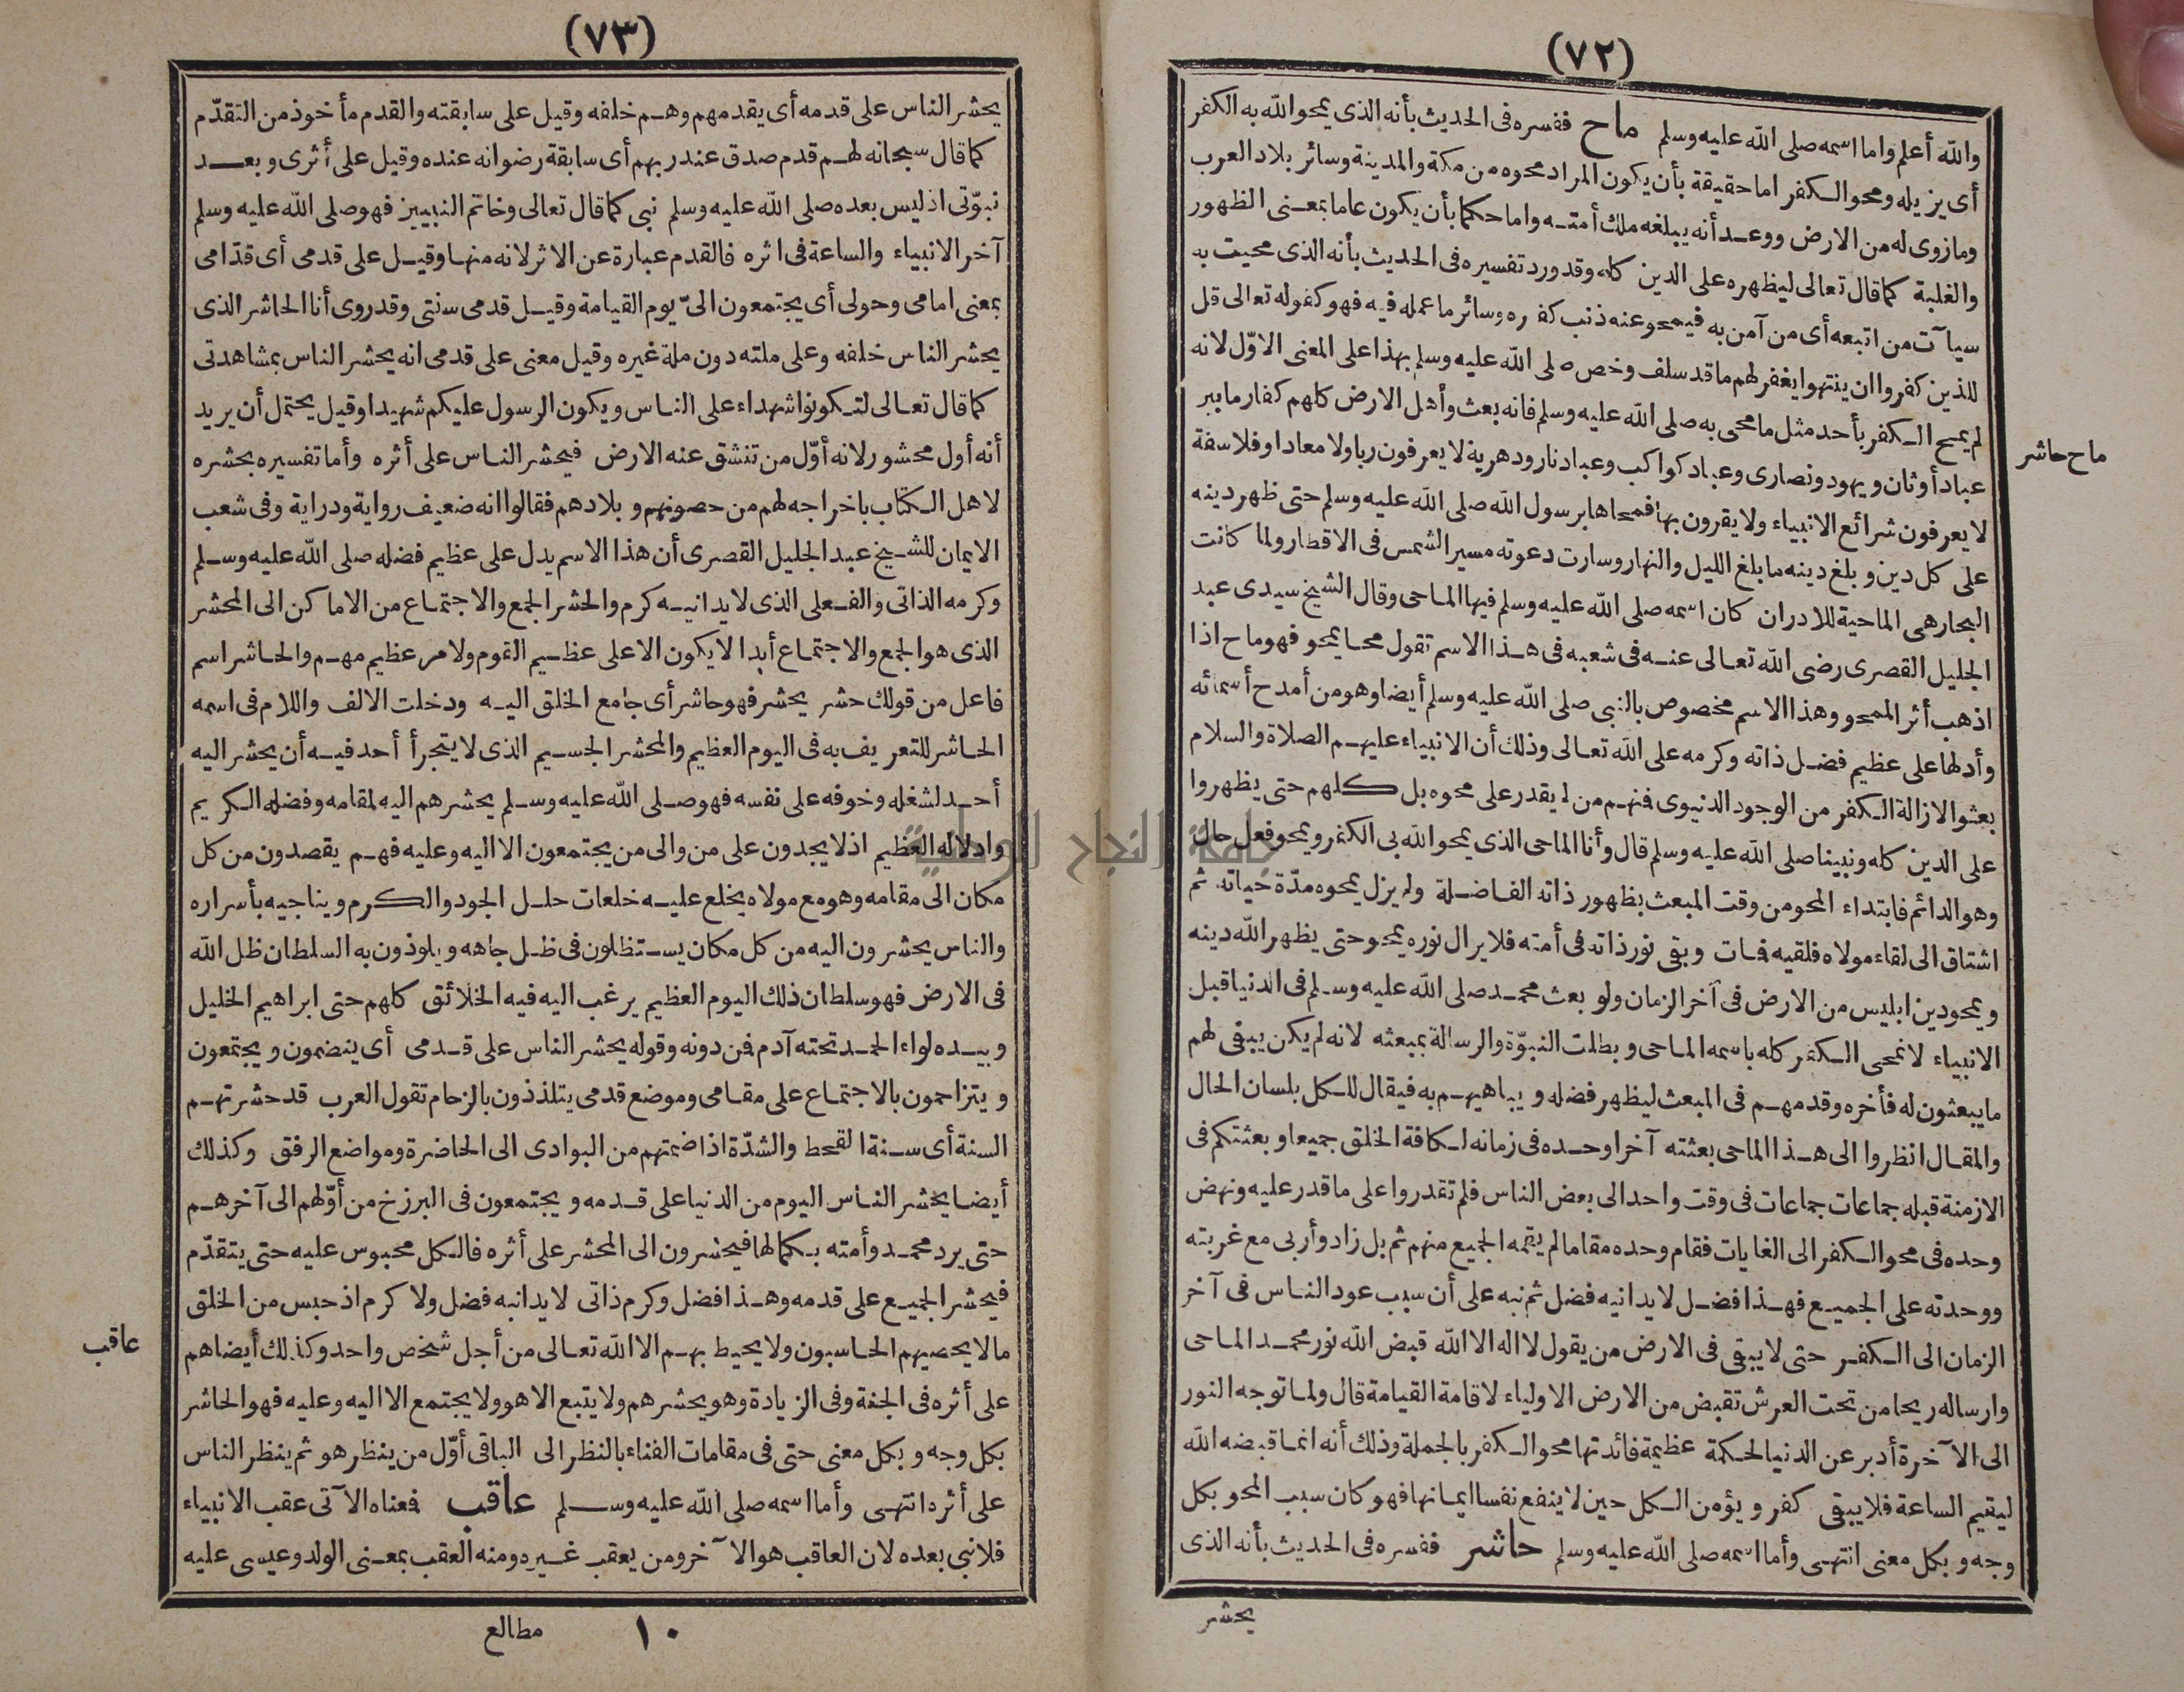 (٧٢)
والله أعلم واما اسمه صلى الله عليه وسلم ماح ففسره فى الحديث بأنه الذى يمحو الله به الكفر
أى يزيله ومحو الكفر اما حقيقة بأن يكون المراد محوه من مكة والمدينة وسائر بلاد العرب
وما زوى له من الارض ووعد أنه يبلغه ملك أمته واما حكما بأن يكون عاما بمعنى الظهور
والغلبة كما قال تعالى ليظهره على الدين كله وقد ورد تفسيره فى الحديث بأنه الذى محيت به
سيآت من اتبعه أى من آمن به فيمحو عنه ذنب كفره وسائر ما عمله فيه فهو كقوله تعالى قل
للذين كفروا ان ينتهوا يغفر لهم ما قد سلف وخص صلى الله عليه وسلم بهذا على المعنى الاوّل لانه
لم يمح الكفر بأحد مثل ما محى به صلى الله عليه وسلم فانه بعث وأهل الارض كلهم كفار ما بين
عباد أوثان ويهود ونصارى وعباد كواكب وعباد نار ودهرية لا يعرفون ربا ولا معادا وفلاسفة
لا يعرفون شرائع الانبياء ولا يقرون بها فمحاها برسول الله صلى الله عليه وسلم حتى ظهر دينه
على كل دين وبلغ دينه ما بلغ الليل والنهار وسارت دعوته مسير الشمس فى الاقطار ولما كانت
البحار هى الماحية للادران كان اسمه صلى الله عليه وسلم فيها الماحى وقال الشيخ سيدى عبد
الجليل القصرى رضى الله تعالى عنه فى شعبه فى هذا الاسم تقول محا يمحو فهو ماح اذا
اذهب أثر الممحو وهذا الاسم مخصوص بالنبى صلى الله عليه وسلم أيضا وهو من أمدح أسمائه
وأدلها على عظيم فضل ذاته وكرمه على الله تعالى وذلك أن الانبياء عليهم الصلاة والسلام
بعثوا لازالة الكفر من الوجود الدنيوى فمنهم من لم يقدر على محوه بل كلهم حتى يظهروا
على الدين كله ونبينا صلى الله عليه وسلم قال وأنا الماحى الذى يمحو الله بى الكفر ويمحو فعل حال
وهو الدائم فابتداء المحو من وقت المبعث بظهور ذاته الفاضلة ولم يزل يمحوه مدّة حياته ثم
اشتاق الى لقاء مولاه فلقيه فمات وبقى نور ذاته فى أمته فلا يزال نوره يمحو حتى يظهر الله دينه
ويمحو دين ابليس من الارض فى آخر الزمان ولو بعث محمد صلى الله عليه وسلم فى الدنيا قبل
الانبياء لانمحى الكفر كله باسمه الماحى وبطلت النبوّة والرسالة بمبعثه لانه لم يكن يبقى لهم
ما يبعثون له فأخره وقدمهم فى المبعث ليظهر فضله ويباهيهم به فيقال للكل بلسان الحال
والمقال انظروا الى هذا الماحى بعثته آخرا وحده فى زمانه لكافة الخلق جميعا وبعثتكم فى
الازمنة قبله جماعات جماعات فى وقت واحد الى بعض الناس فلم تقدروا على ما قدر عليه ونهض
وحده فى محو الكفر الى الغايات فقام وحده مقاما لم يقمه الجميع منهم ثم بل زاد وأربى مع غربته
ووحدته على الجميع فهذا فضل لا يدانيه فضل ثم نبه على أن سبب عود الناس فى آخر
الزمان الى الكفر حتى لا يبقى فى الارض من يقول لا اله الا الله قبض الله نور محمد الماحى
وارساله ريحا من تحت العرش تقبض من الارض الاولياء لاقامة القيامة قال ولما توجه النور
الى الآخرة أدبر عن الدنيا لحكمة عظيمة فائدتها محو الكفر بالجملة وذلك أنه انما قبضه الله
ليقيم الساعة فلا يبقى كفر ويؤمن الكل حين لا ينفع نفسا ايمانها فهو كان سبب المحو بكل
وجه وبكل معنى انتهى وأما اسمه صلى الله عليه وسلم حاشر ففسره فى الحديث بأنه الذى
يحشر
ماح حاشر
(٧٣)
يحشر الناس على قدمه أى يقدمهم وهم خلفه وقيل على سابقته والقدم مأخوذ من التقدّم
كما قال سبحانه لهم قدم صدق عند ربهم أى سابقة رضوانه عنده وقيل على أثرى وبعد
نبوّتى اذ ليس بعده صلى الله عليه وسلم نبى كما قال تعالى وخاتم النبيين فهو صلى الله عليه وسلم
آخر الانبياء والساعة فى اثره فالقدم عبارة عن الاثر لانه منها وقيل على قدمى أى قدّامى
بمعنى امامى وحولى أى يجتمعون الىّ يوم القيامة وقيل قدمى سنتى وقد روى أنا الحاشر الذى
يحشر الناس خلفه وعلى ملته دون ملة غيره وقيل معنى على قدمى انه يحشر الناس بمشاهدتى
كما قال تعالى لتكونوا شهداء على الناس ويكون الرسول عليكم شهيدا وقيل يحتمل أن يريد
أنه أول محشور لانه أوّل من تنشق عنه الارض فيحشر الناس على أثره وأما تفسيره بحشره
لاهل الكتاب باخراجه لهم من حصونهم وبلادهم فقالوا انه ضعيف رواية ودراية وفى شعب
الايمان للشيخ عبد الجليل القصرى أن هذا الاسم يدل على عظيم فضله صلى الله عليه وسلم
وكرمه الذاتى والفعلى الذى لا يدانيه كرم والحشر الجمع والاجتماع من الاماكن الى المحشر
الذى هو الجمع والاجتماع أبدا لا يكون الا على عظيم القوم ولامر عظيم مهم والحاشر اسم
فاعل من قولك حشر يحشر فهو حاشر أى جامع الخلق اليه ودخلت الالف واللام فى اسمه
الحاشر للتعريف به فى اليوم العظيم والمحشر الجسيم الذى لا يتجرأ أحد فيه أن يحشر اليه
أحد لشغله وخوفه على نفسه فهو صلى الله عليه وسلم يحشرهم اليه لمقامه وفضله الكريم
وادلاله العظيم اذ لا يجدون على من والى من يجتمعون الا اليه وعليه فهم يقصدون من كل
مكان الى مقامه وهو مع مولاه يخلع عليه خلعات حلل الجود والكرم ويناجيه بأسراره
والناس يحشرون اليه من كل مكان يستظلون فى ظل جاهه ويلوذون به السلطان ظل الله
فى الارض فهو سلطان ذلك اليوم العظيم يرغب اليه فيه الخلائق كلهم حتى ابراهيم الخليل
وبيده لواء الحمد تحته آدم فمن دونه وقوله يحشر الناس على قدمى أى ينضمون ويجتمعون
ويتزاحمون بالاجتماع على مقامى وموضع قدمى يتلذذون بالزحام تقول العرب قد حشرتهم
السنة أى سنة القحط والشدّة اذا ضمتهم من البوادى الى الحاضرة ومواضع الرفق وكذلك
أيضا يحشر الناس اليوم من الدنيا على قدمه ويجتمعون فى البرزخ من أوّلهم الى آخرهم
حتى يرد محمد وأمته بكمالها فيحشرون الى المحشر على أثره فالكل محبوس عليه حتى يتقدّم
فيحشر الجميع على قدمه وهذا فضل وكرم ذاتى لا يدانيه فضل ولا كرم اذ حبس من الخلق
مالا يحصيهم الحاسبون ولا يحيط بهم الا الله تعالى من أجل شخص واحد وكذلك أيضا هم
على أثره فى الجنة وفى الزيادة وهو يحشرهم ولا يتبع الا هو ولا يجتمع الا اليه وعليه فهو الحاشر
بكل وجه وبكل معنى حتى فى مقامات الفناء بالنظر الى الباقى أوّل من ينظر هو ثم ينظر الناس
على أثره انتهى وأما اسمه صلى الله عليه وسلم عاقب فمعناه الآتى عقب الانبياء
فلا نبى بعده لان العاقب هو الآخر ومن يعقب غيره ومنه العقب بمعنى الولد وعيسى عليه
عاقب
١٠ مطالع
جامعة النجاح الوطنية